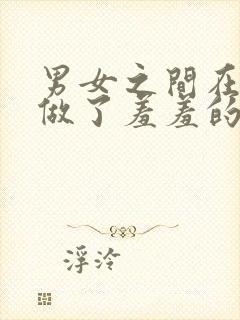 男女之間在
做了羞羞的
浮泠